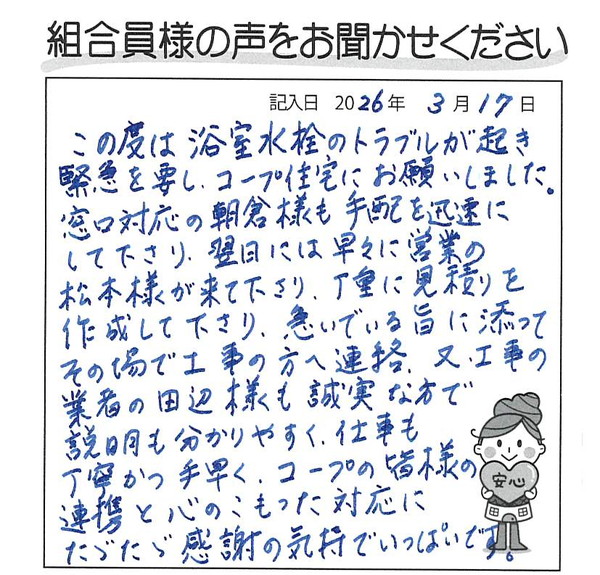 組合員様の声をお聞かせください
記入日 2026年 3月17日
この度は浴室水栓のトラブルが起き
緊急を要し、コープ住宅にお願いしました。
窓口対応の朝倉様も手配を迅速に
して下さり、翌日には早々に営業の
松本様が来て下さり、丁重に見積りを
作成して下さり、急いでいる旨に添って
その場で工事の方へ連絡、又、工事の
業者の田辺様も誠実な方で
説明も分かりやすく、仕事も
丁寧かつ手早く、コープの皆様の
連携と心のこもった対応に
ただただ感謝の気持でいっぱいです。
安心